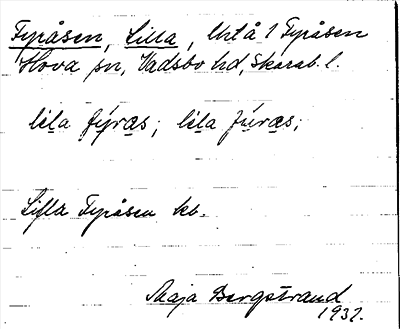 Fyråsen, Lilla, Urtå 1 Fyråsen
Hova sn, Vadsbo hd, Skarab. l.
lila fýras; lila fúras;
Lilla Fyråsen kb.
Maja Bergstrand
1932.